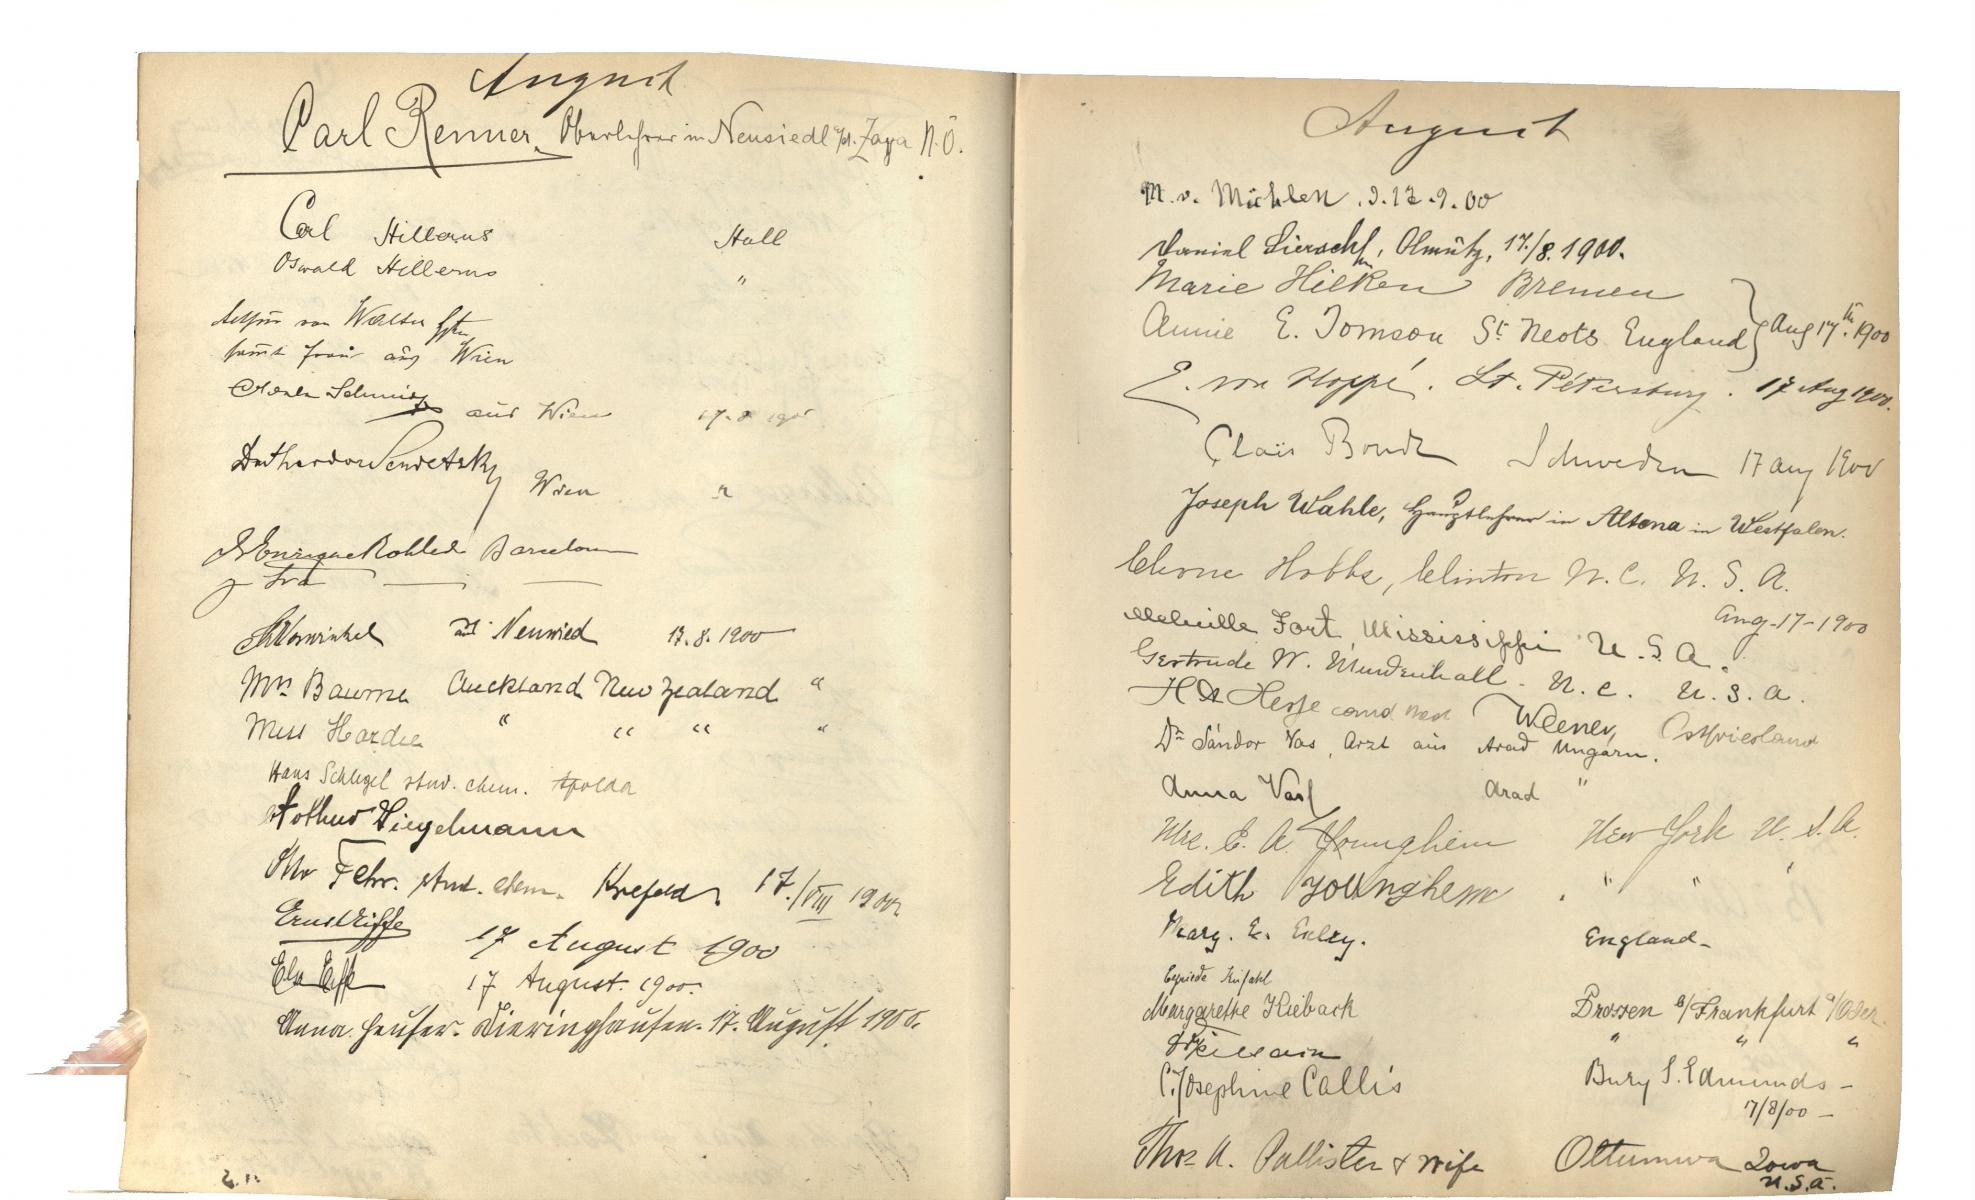 August
Carl Renner, Oberlehrer in Neusiedl a/d. Zaya N.Ö.
Carl Hillerns Hall
Oswald Hillerns "
von Walter
samt Frau aus Wien
Schmidt aus Wien 17. 8. 1900
Wien "
Enrique Robledo Barcelona
y Sra
aus Neuwied 17. 8. 1900
Mrs Baume Auckland New Zealand "
Miss Hardie " " " "
Hans Schlegel stud. chem. Apolda
Lothar Wiegelmann
Otto Fehr. stud. chem. Krefeld. 17./VIII 1900
Ernst Eiffe 17 August 1900
17 August. 1900.
Anna Heuser. Dieringhausen. 17. August 1900.
August
M. v. Mühlen
Daniel Olmütz, 17./8. 1900.
Marie Hilken Bremen
Annie E. Tomson St Neots England } Aug 17th. 1900
E. von Hoppé. St. Pétersburg. 17 Aug 1900.
Claës Bonde Schweden 17 aug 1900
Joseph Wahle, Hauptlehrer in Altena in Westfalen.
Hobbs, Clinton N. C. U. S. A.
Aug-17-1900
Melville Fort Mississippi U. S. A.
Gertrude W. Mendenhall. N. C. U. S. A.
Hesse Weener, Ostfriesland
Dr Sándor Vas, Arzt aus Arad Ungarn.
Anna Vas Arad "
Mrs. E. A. Youngheim New York U. S. A.
Edith Youngheim " " "
Mary. E. Exley. England-
Margarethe Kieback Drossen b/Frankfurt a/Oder.
" " "
C. Josephine Callis Bury S. Edmunds -
17/8/00 -
Thos A. Pallister & wife Ottumwa Iowa
U.S.A.